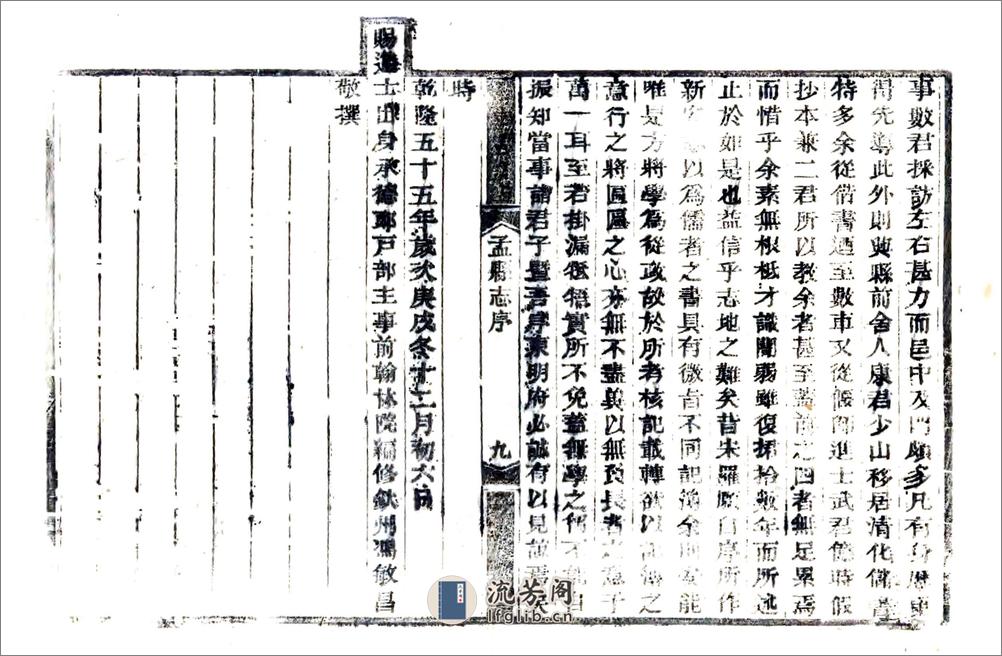 事數君採訪左右甚力而邑中及門頗多凡有身歷
得先導此外則興縣前舍人康君少山移居清化儲書
特多余從借書迺至數車又從偃師進士武君億時假
抄本兼二君所以教余者甚至蓋前之四者無足累焉
而惜乎余素無根柢才識闇弱雖復捃拾數年而所述
止於如是也益信乎志地之難矣昔宋羅願自序所作
新安志以為儒者之書具有微旨不同記簿余則安能
唯是方將學為從政故於所考核記載轉欲以之
意行之將區區之心亦無不盡冀以無負長者之意于
萬一耳至若掛漏牴牾實所不免蓋無學之所不自
振知當事諸君子暨吾岸東明府必誠有以見諒焉
時
乾隆五十五年歲次庚戌冬十二月初六日
賜進士出身承德郎戶部主事前翰林院編修欽州馮敏昌
敬撰
孟縣志序
九
流芳阁
lfglib.cn